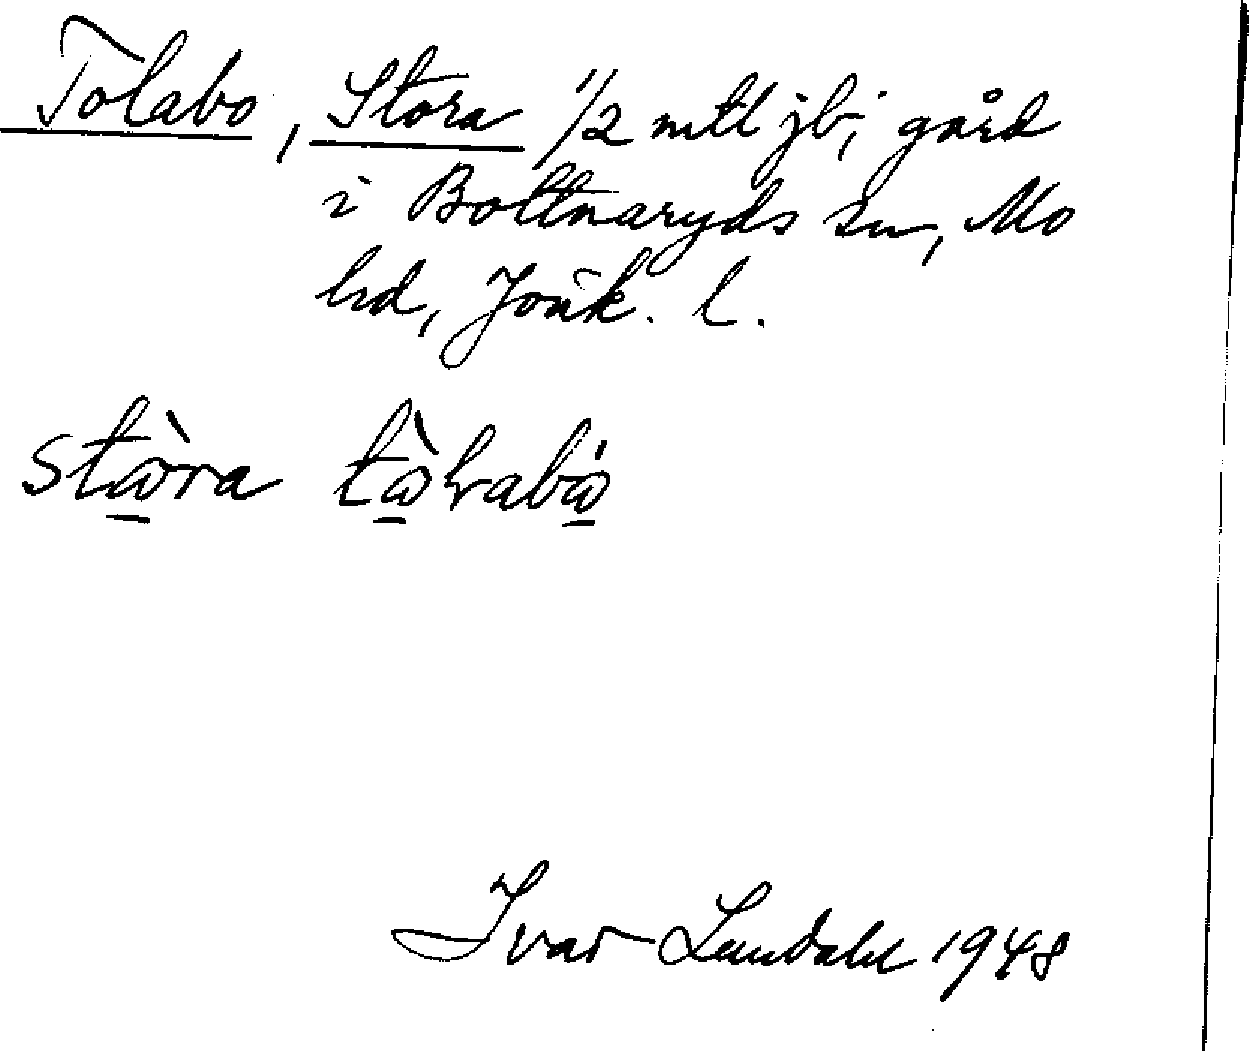 Tolabo, Stora 1/2 mtl jb; gård
i Bottnaryds sn, Mo
hd, Jönk. l.
stὼ̱ra tὼ̱ɬrabώ̱
Ivar Lundahl 1948